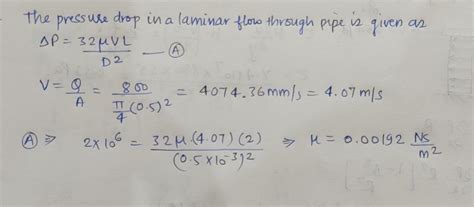 The pressure drop in a laminar flow through pipe is given as
ΔP = 32μVL / D² — Ⓐ
V = Q/A = 800 / (π/4 (0.5)²) = 4074.36 mm/s = 4.07 m/s
Ⓐ ⇒ 2×10⁶ = 32μ(4.07)(2) / (0.5×10⁻³)² ⇒ μ = 0.00192 Ns/m²